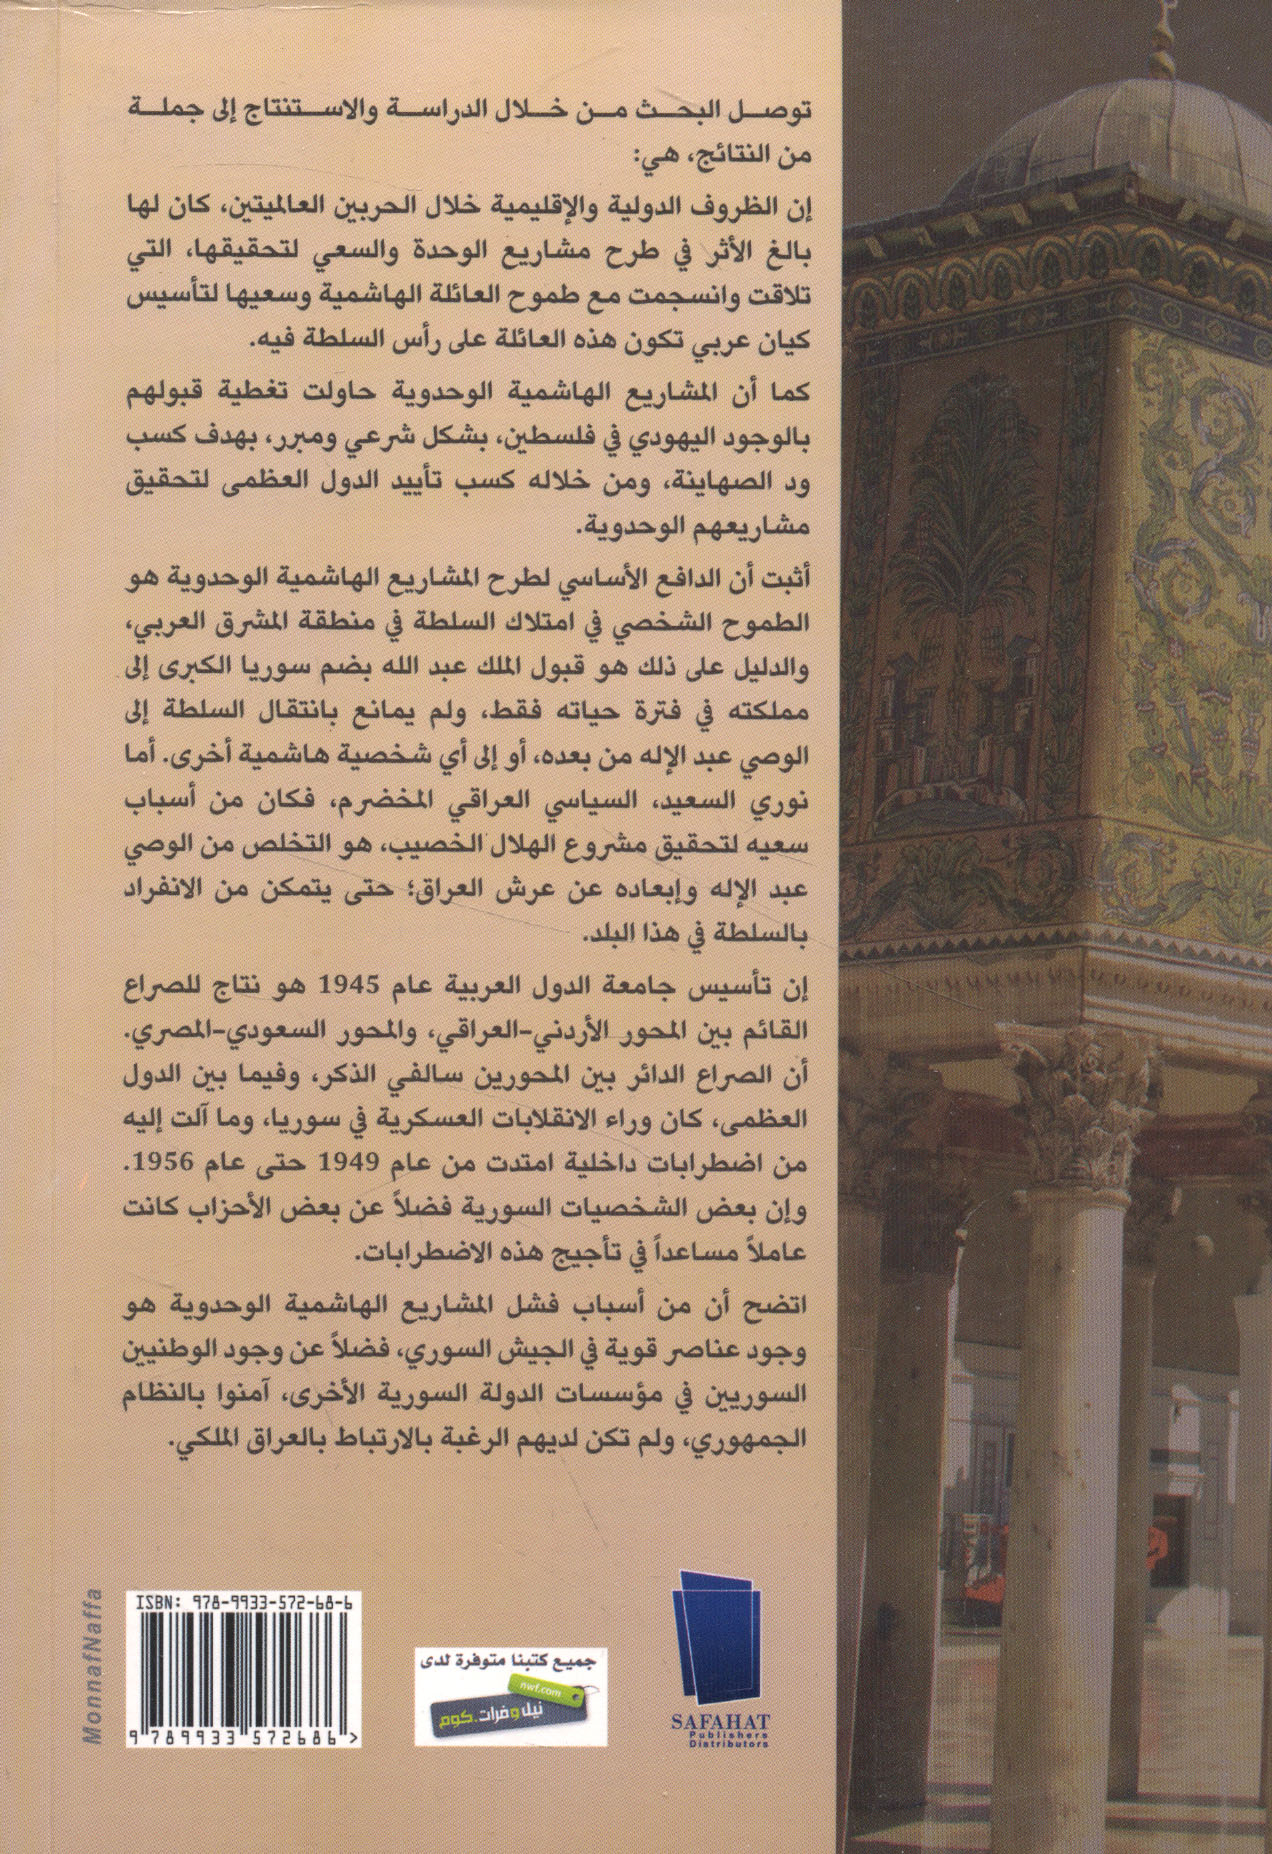 توصل البحث من خلال الدراسة والاستنتاج إلى جملة
من النتائج، هي:
إن الظروف الدولية والإقليمية خلال الحربين العالميتين، كان لها
بالغ الأثر في طرح مشاريع الوحدة والسعي لتحقيقها، التي
تلاقت وانسجمت مع طموح العائلة الهاشمية وسعيها لتأسيس
كيان عربي تكون هذه العائلة على رأس السلطة فيه.
كما أن المشاريع الهاشمية الوحدوية حاولت تغطية قبولهم
بالوجود اليهودي في فلسطين، بشكل شرعي ومبرر، بهدف كسب
ود الصهاينة، ومن خلاله كسب تأييد الدول العظمى لتحقيق
مشاريعهم الوحدوية.
أثبت أن الدافع الأساسي لطرح المشاريع الهاشمية الوحدوية هو
الطموح الشخصي في امتلاك السلطة في منطقة المشرق العربي،
والدليل على ذلك هو قبول الملك عبد الله بضم سوريا الكبرى إلى
مملكته في فترة حياته فقط، ولم يمانع بانتقال السلطة إلى
الوصي عبد الإله من بعده، أو إلى أي شخصية هاشمية أخرى. أما
نوري السعيد، السياسي العراقي المخضرم، فكان من أسباب
سعيه لتحقيق مشروع الهلال الخصيب، هو التخلص من الوصي
عبد الإله وإبعاده عن عرش العراق؛ حتى يتمكن من الانفراد
بالسلطة في هذا البلد.
إن تأسيس جامعة الدول العربية عام 1945 هو نتاج للصراع
القائم بين المحور الأردني-العراقي، والمحور السعودي-المصري.
أن الصراع الدائر بين المحورين سالفي الذكر، وفيما بين الدول
العظمى، كان وراء الانقلابات العسكرية في سوريا، وما آلت إليه
من اضطرابات داخلية امتدت من عام 1949 حتى عام 1956.
وإن بعض الشخصيات السورية فضلاً عن بعض الأحزاب كانت
عاملاً مساعداً في تأجيج هذه الاضطرابات.
اتضح أن من أسباب فشل المشاريع الهاشمية الوحدوية هو
وجود عناصر قوية في الجيش السوري، فضلاً عن وجود الوطنيين
السوريين في مؤسسات الدولة السورية الأخرى، آمنوا بالنظام
الجمهوري، ولم تكن لديهم الرغبة بالارتباط بالعراق الملكي.
SAFAHAT
Publishers
Distributors
جميع كتبنا متوفرة لدى
nwf.com
نيل وفرات.كوم
ISBN: 978-9933-572-68-6
9 789933 572686 >
MonnafNaffa